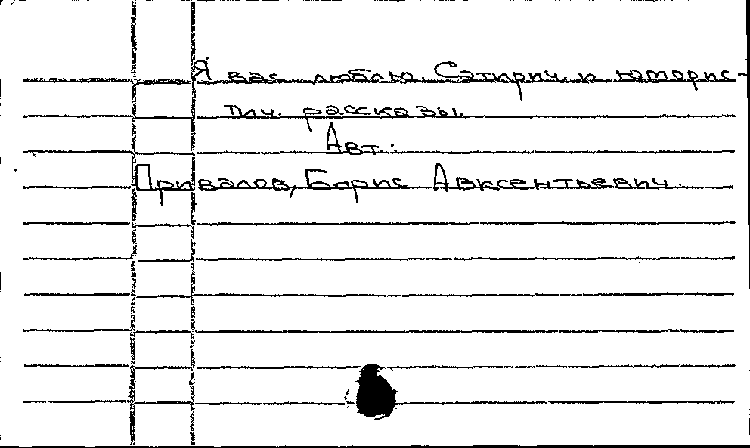 Я вас люблю. Сатирич. и юморис-
тич. рассказы.
Авт.:
Привалов, Борис Авксентьевич.